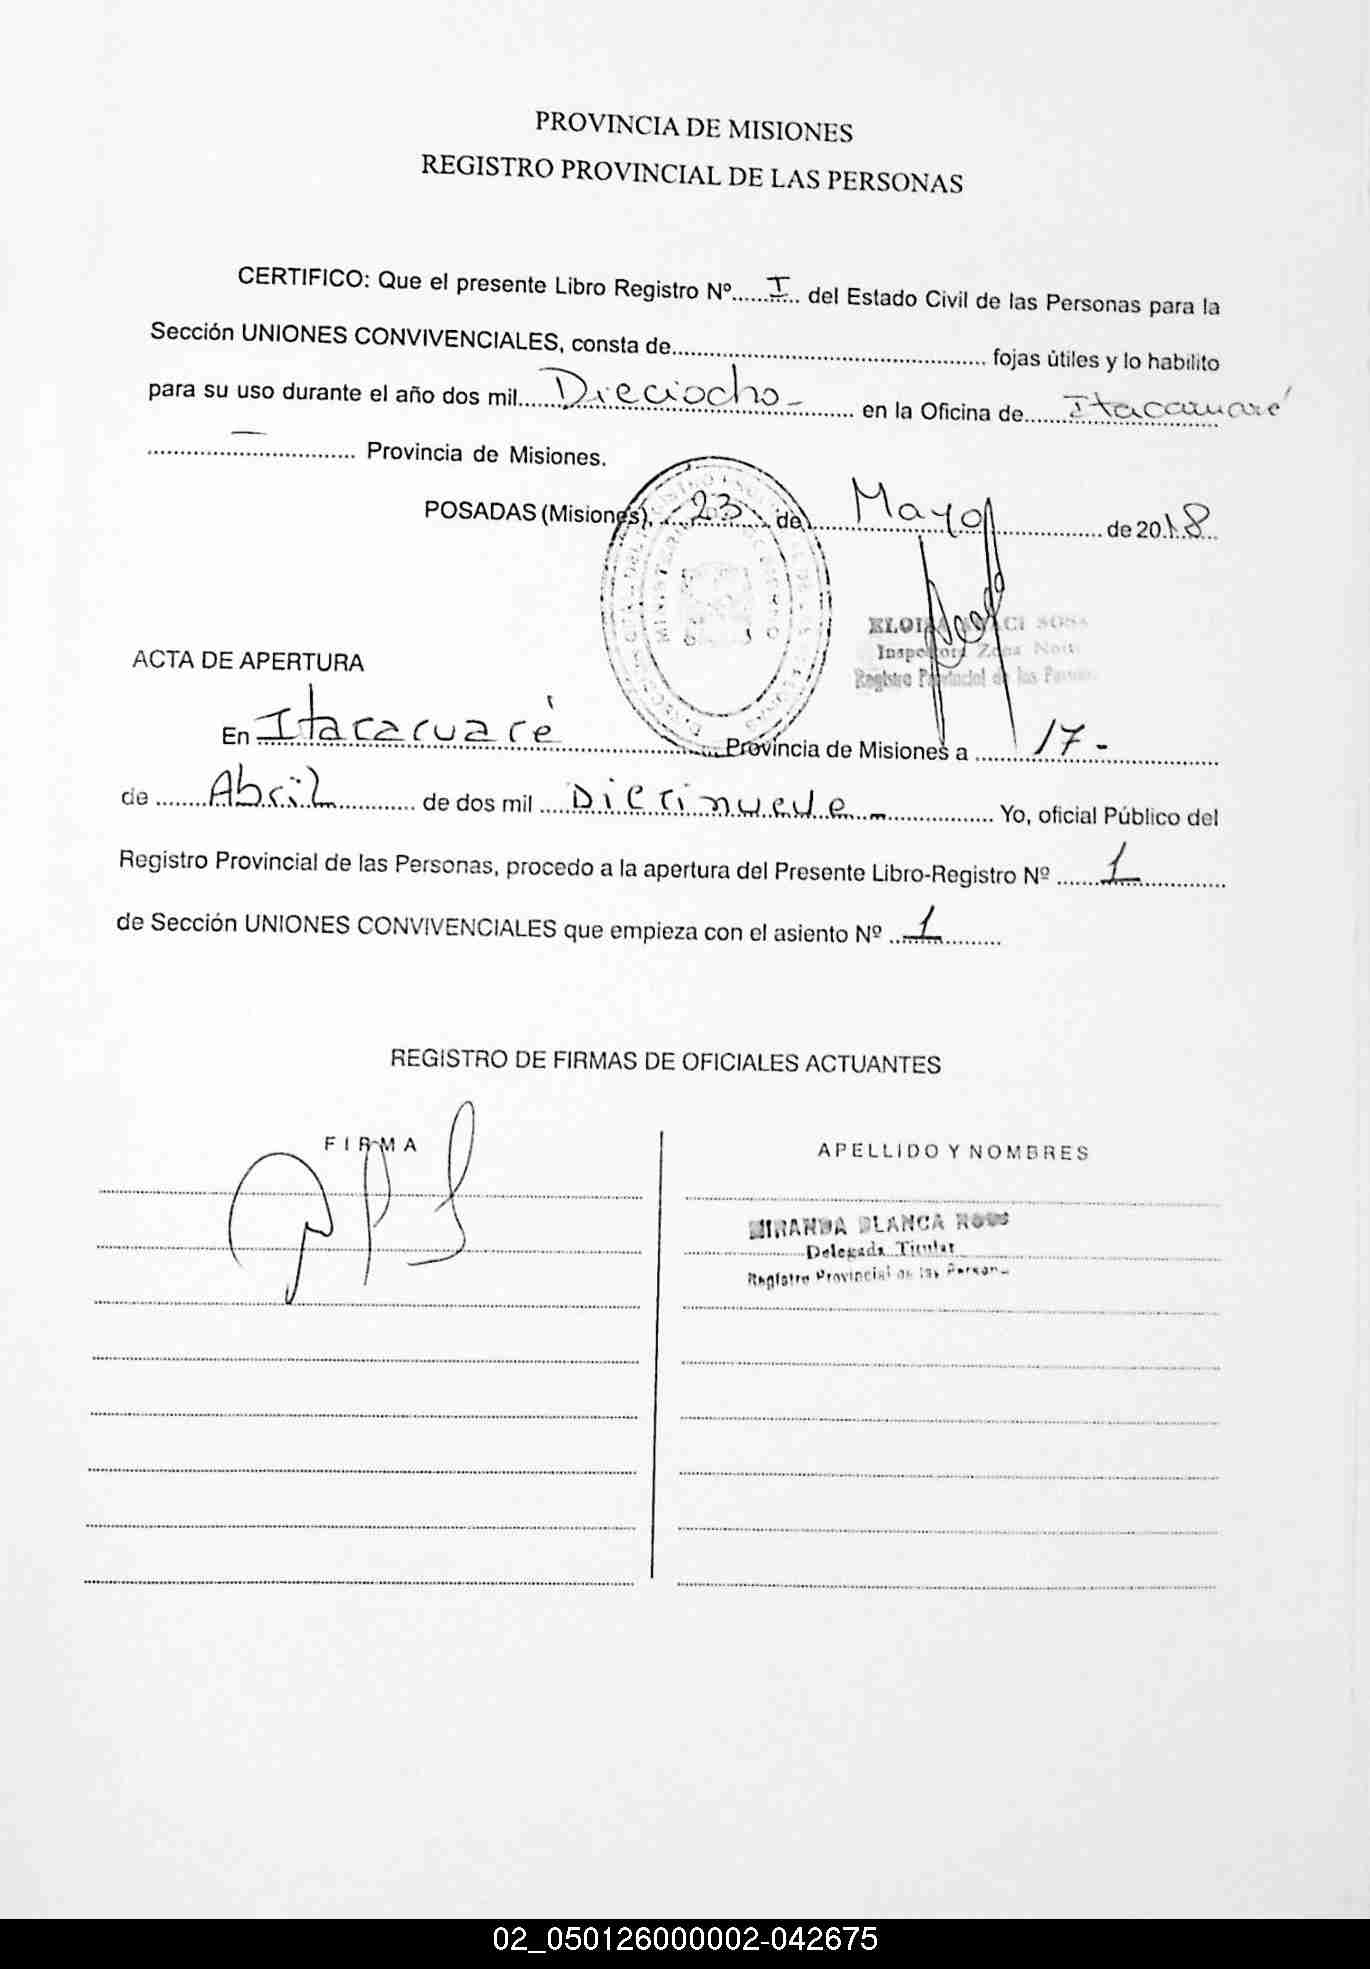 PROVINCIA DE MISIONES
REGISTRO PROVINCIAL DE LAS PERSONAS
CERTIFICO: Que el presente Libro Registro Nº......I.. del Estado Civil de las Personas para la
Sección UNIONES CONVIVENCIALES, consta de.............................................. fojas útiles y lo habilito
para su uso durante el año dos mil.....Dieciocho-........ en la Oficina de.....Itacaruaré
.......—....... Provincia de Misiones.
POSADAS (Misiones), ....23.... de....Mayo.... de 2018..
Inspectora Zona
Registro Provincial de las
ACTA DE APERTURA
En Itacaruaré........ Provincia de Misiones a ......17-......
de ......Abril........ de dos mil ....Diecinueve-........ Yo, oficial Público del
Registro Provincial de las Personas, procedo a la apertura del Presente Libro-Registro Nº ......1........
de Sección UNIONES CONVIVENCIALES que empieza con el asiento Nº ..1........
REGISTRO DE FIRMAS DE OFICIALES ACTUANTES
FIRMA
APELLIDO Y NOMBRES
MIRANDA BLANCA ROSA
Delegada Titular
Registro Provincial de las Personas
02_050126000002-042675